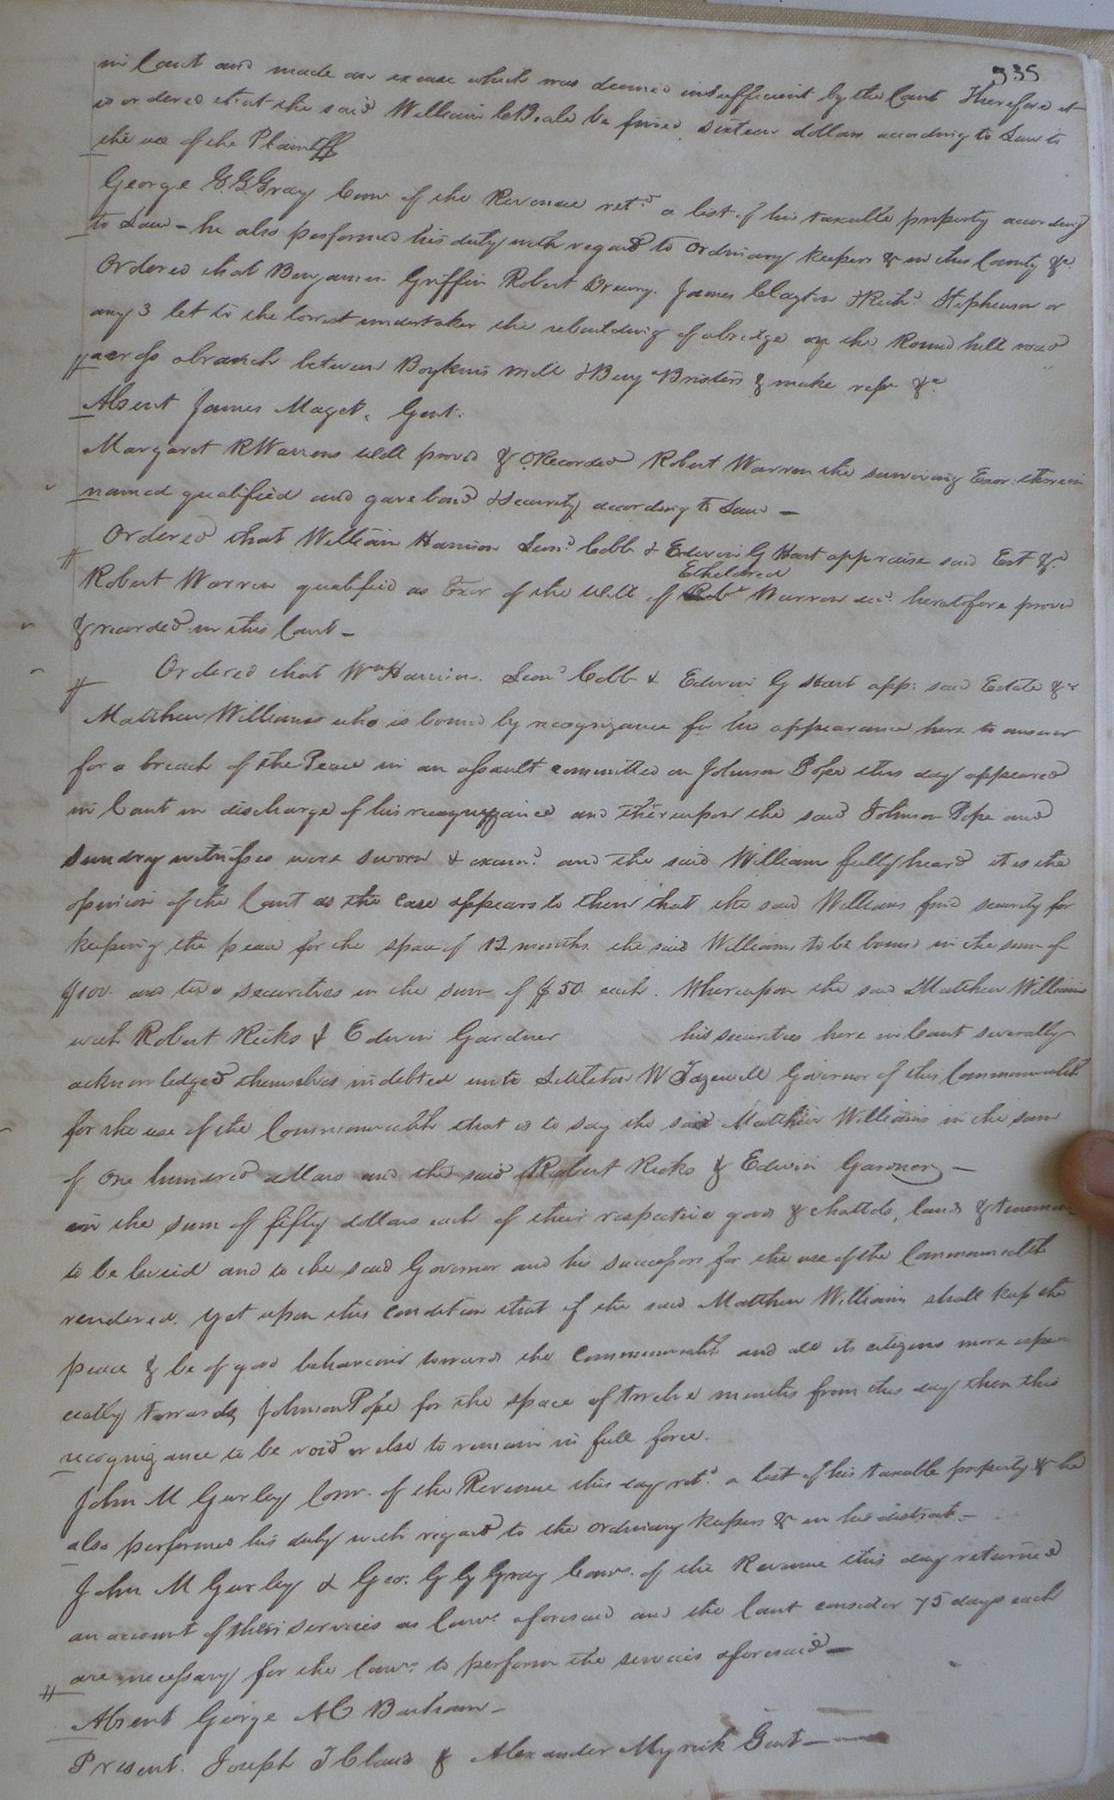 335
in Court and made an excuse which was deemed insufficient by the Court Therefore it
is ordered that the said William C Beale be fined sixteen dollars according to Law to
the use of the Plaintiff
George G. G. Gray Comr of the Revenue retd a list of his taxable property according
to Law – he also performed his duty with regard to Ordinary keepers & in this County &c
Ordered that Benjamin Griffin Robert Drewry James Clayton & Richd Stephenson or
any 3 let to the lowest undertaker the rebuilding of a bridge on the Round hill road
across a branch between Boykins Mill & Benj Bristers & make repo &c
Absent James Maget, Gent.
Margaret R Warrens Will proved & O Recorded Robert Warren the surviving Exor therein
named qualified and gave bond & Security according to Law –
Ordered that William Harrison Leml Cobb & Edwin G Hart appraise said Est &c
Etheldred
Robert Warren qualified as Exor of the Will of Robt Warren decd heretofore proved
& recorded in this Court –
Ordered that Wm Harrison Leml Cobb & Edwin G Hart app: said Estate &c
Matthew Williams who is bound by recognizance for his appearance here to answer
for a breach of the Peace in an assault committed on Johnson Pope this day appeared
in Court in discharge of his recognizance and thereupon the said Johnson Pope and
sundry witnesses were sworn & examd and the said Williams fully heard it is the
opinion of the Court as the case appears to them that the said Williams find security for
keeping the peace for the space of 12 months the said Williams to be bound in the sum of
$100. and two securities in the sum of $50 each. Whereupon the said Matthew Williams
with Robert Ricks & Edwin Gardner his securities here in Court severally
acknowledged themselves indebted unto Littleton W Tazewell Governor of this Commonwealth
for the use of the Commonwealth that is to say the said Matthew Williams in the sum
of One hundred dollars and the said Robert Ricks & Edwin Gardner –
in the sum of fifty dollars each of their respective goods & chattels, lands & tenements
to be levied and to the said Governor and his successors for the use of the Commonwealth
rendered. Yet upon this condition that if the said Matthew Williams shall keep the
peace & be of good behaviour towards the Commonwealth and all its citizens more espe
cially towards Johnson Pope for the space of twelve months from this day then this
recognizance to be void or else to remain in full force.
John M Gurley Comr. of the Revenue this day retd. a list of his taxable property & he
also performed his duty with regard to the ordinary keepers & in his district –
John M Gurley & Geo. G G Gray Comrs. of the Revenue this day returned
an account of their services as Comrs aforesaid and the Court consider 75 days each
are necessary for the Comrs to perform the services aforesaid –
Absent George A C Barham –
Present. Joseph T Claud & Alexander Myrick Gent –